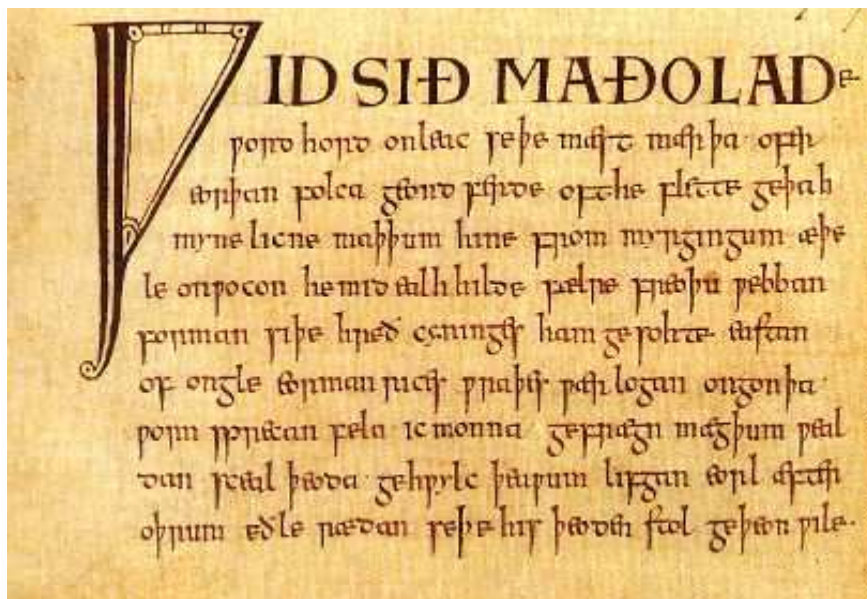 ǷIDSIÐ MAÐOLADE
ƿord hord onleac seþe mæst mærþa ofer
eorþan folca geond ferde oft he flette geþah
mynelicne maþþum hine from myrgingum æþe
le onƿocon he mid ealhhilde fælre freoþu ƿebban
forman siþe hreð cyninges ham gesohte eastan
of ongle eormanrices ƿraþes ƿærlogan ongon þa·
ƿorn sprecan fela ic monna gefrægn mægþum ƿeal
dan sceal þeoda gehƿylc þeaƿum lifgan eorl æfter
oþrum eðle rædan seþe his þeoden stol geþeon ƿile·